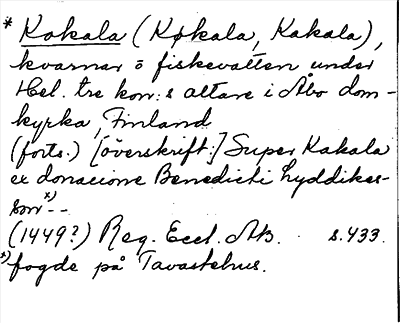 * Kokala (Køkala, Kakala),
kvarnar o fiskevatten under
Hel. tre kon:s altare i Åbo dom-
kyrka, Finland
(forts.) [överskrift:] Super Kakala
ex donacione Benedicti Lyddikes-
son x) --
(1449?) Reg. Eccl. Ab. s. 433.
x) fogde på Tavastehus.